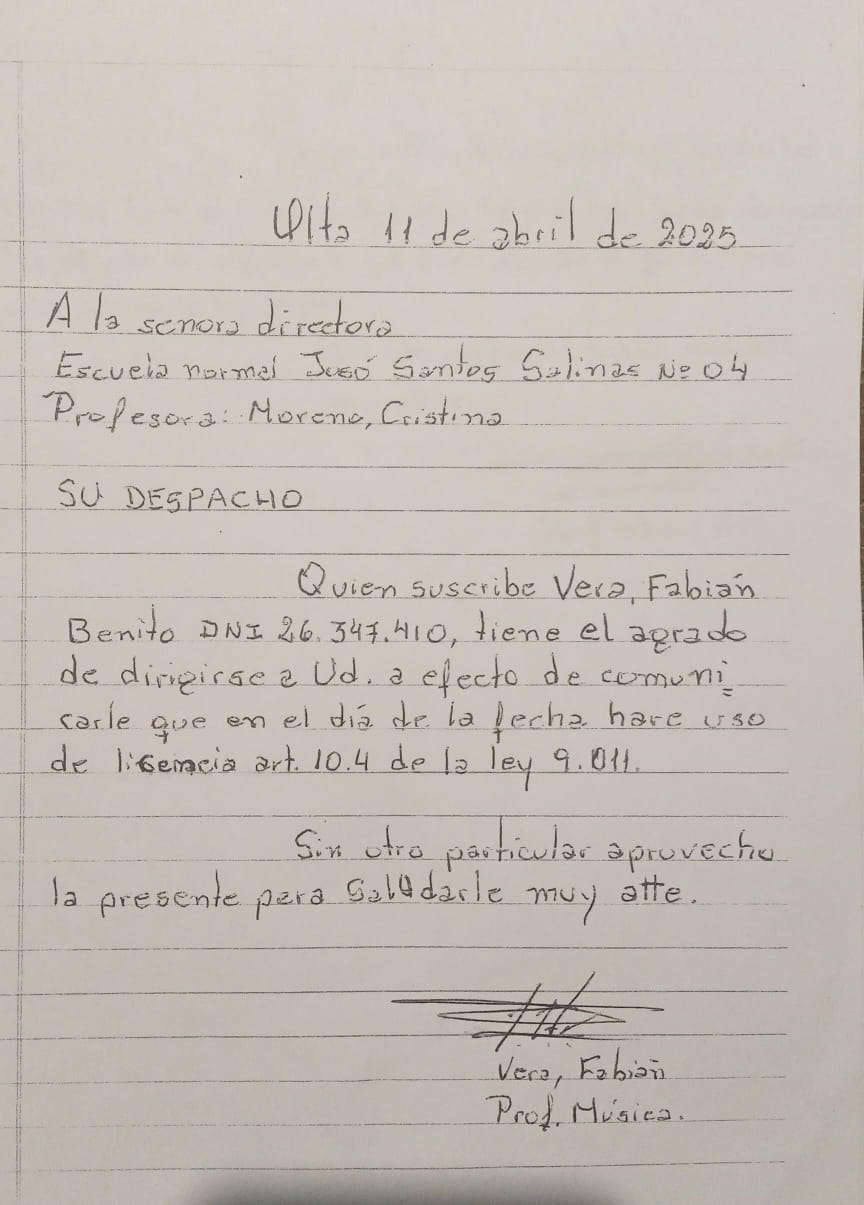 Olta 11 de abril de 2025
A la senora directora
Escuela normal José Santos Salinas Nº 04
Profesora: Moreno, Cristina
SU DESPACHO
Quien suscribe Vera, Fabián
Benito DNI 26.347.410, tiene el agrado
de dirigirse a Ud. a efecto de comuni=
carle que en el día de la fecha hare uso
de licencia art. 10.4 de la ley 9.011.
Sin otro particular aprovecho
la presente para Saludarle muy atte.
Vera, Fabián
Prof. Música.